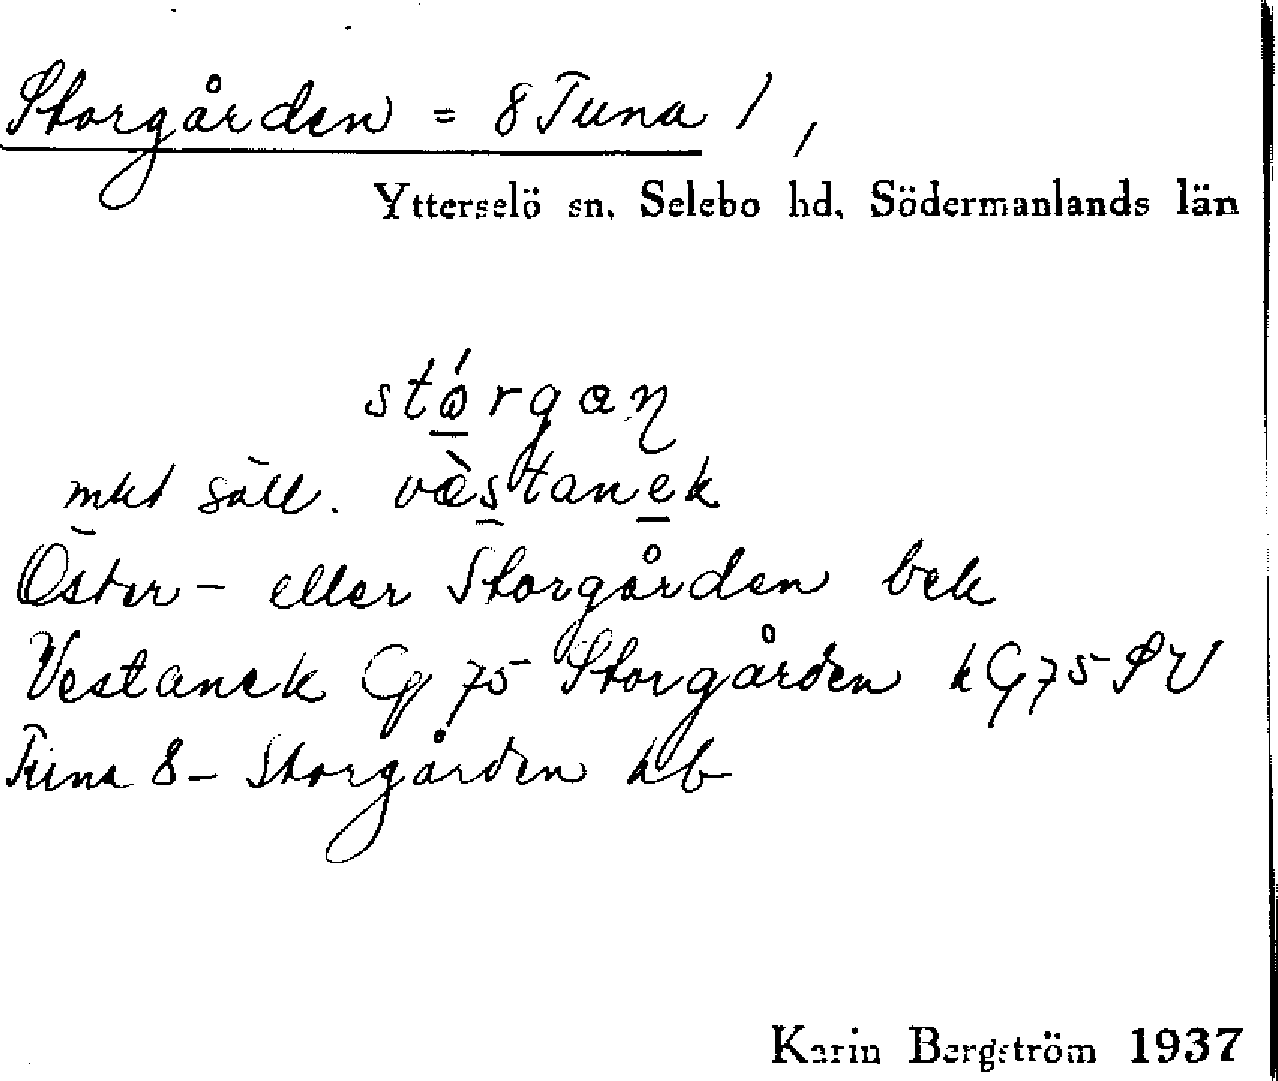 Storgården = 8 Tuna 1,
Ytterselö sn. Selebo hd. Södermanlands län
stǿrgan
mkt säll. vàstanek
Öster- eller Storgården bek
Vestanek Gg 75 Storgården kG 75 SV
Tuna 8 - Storgården hb
Karin Bergström 1937